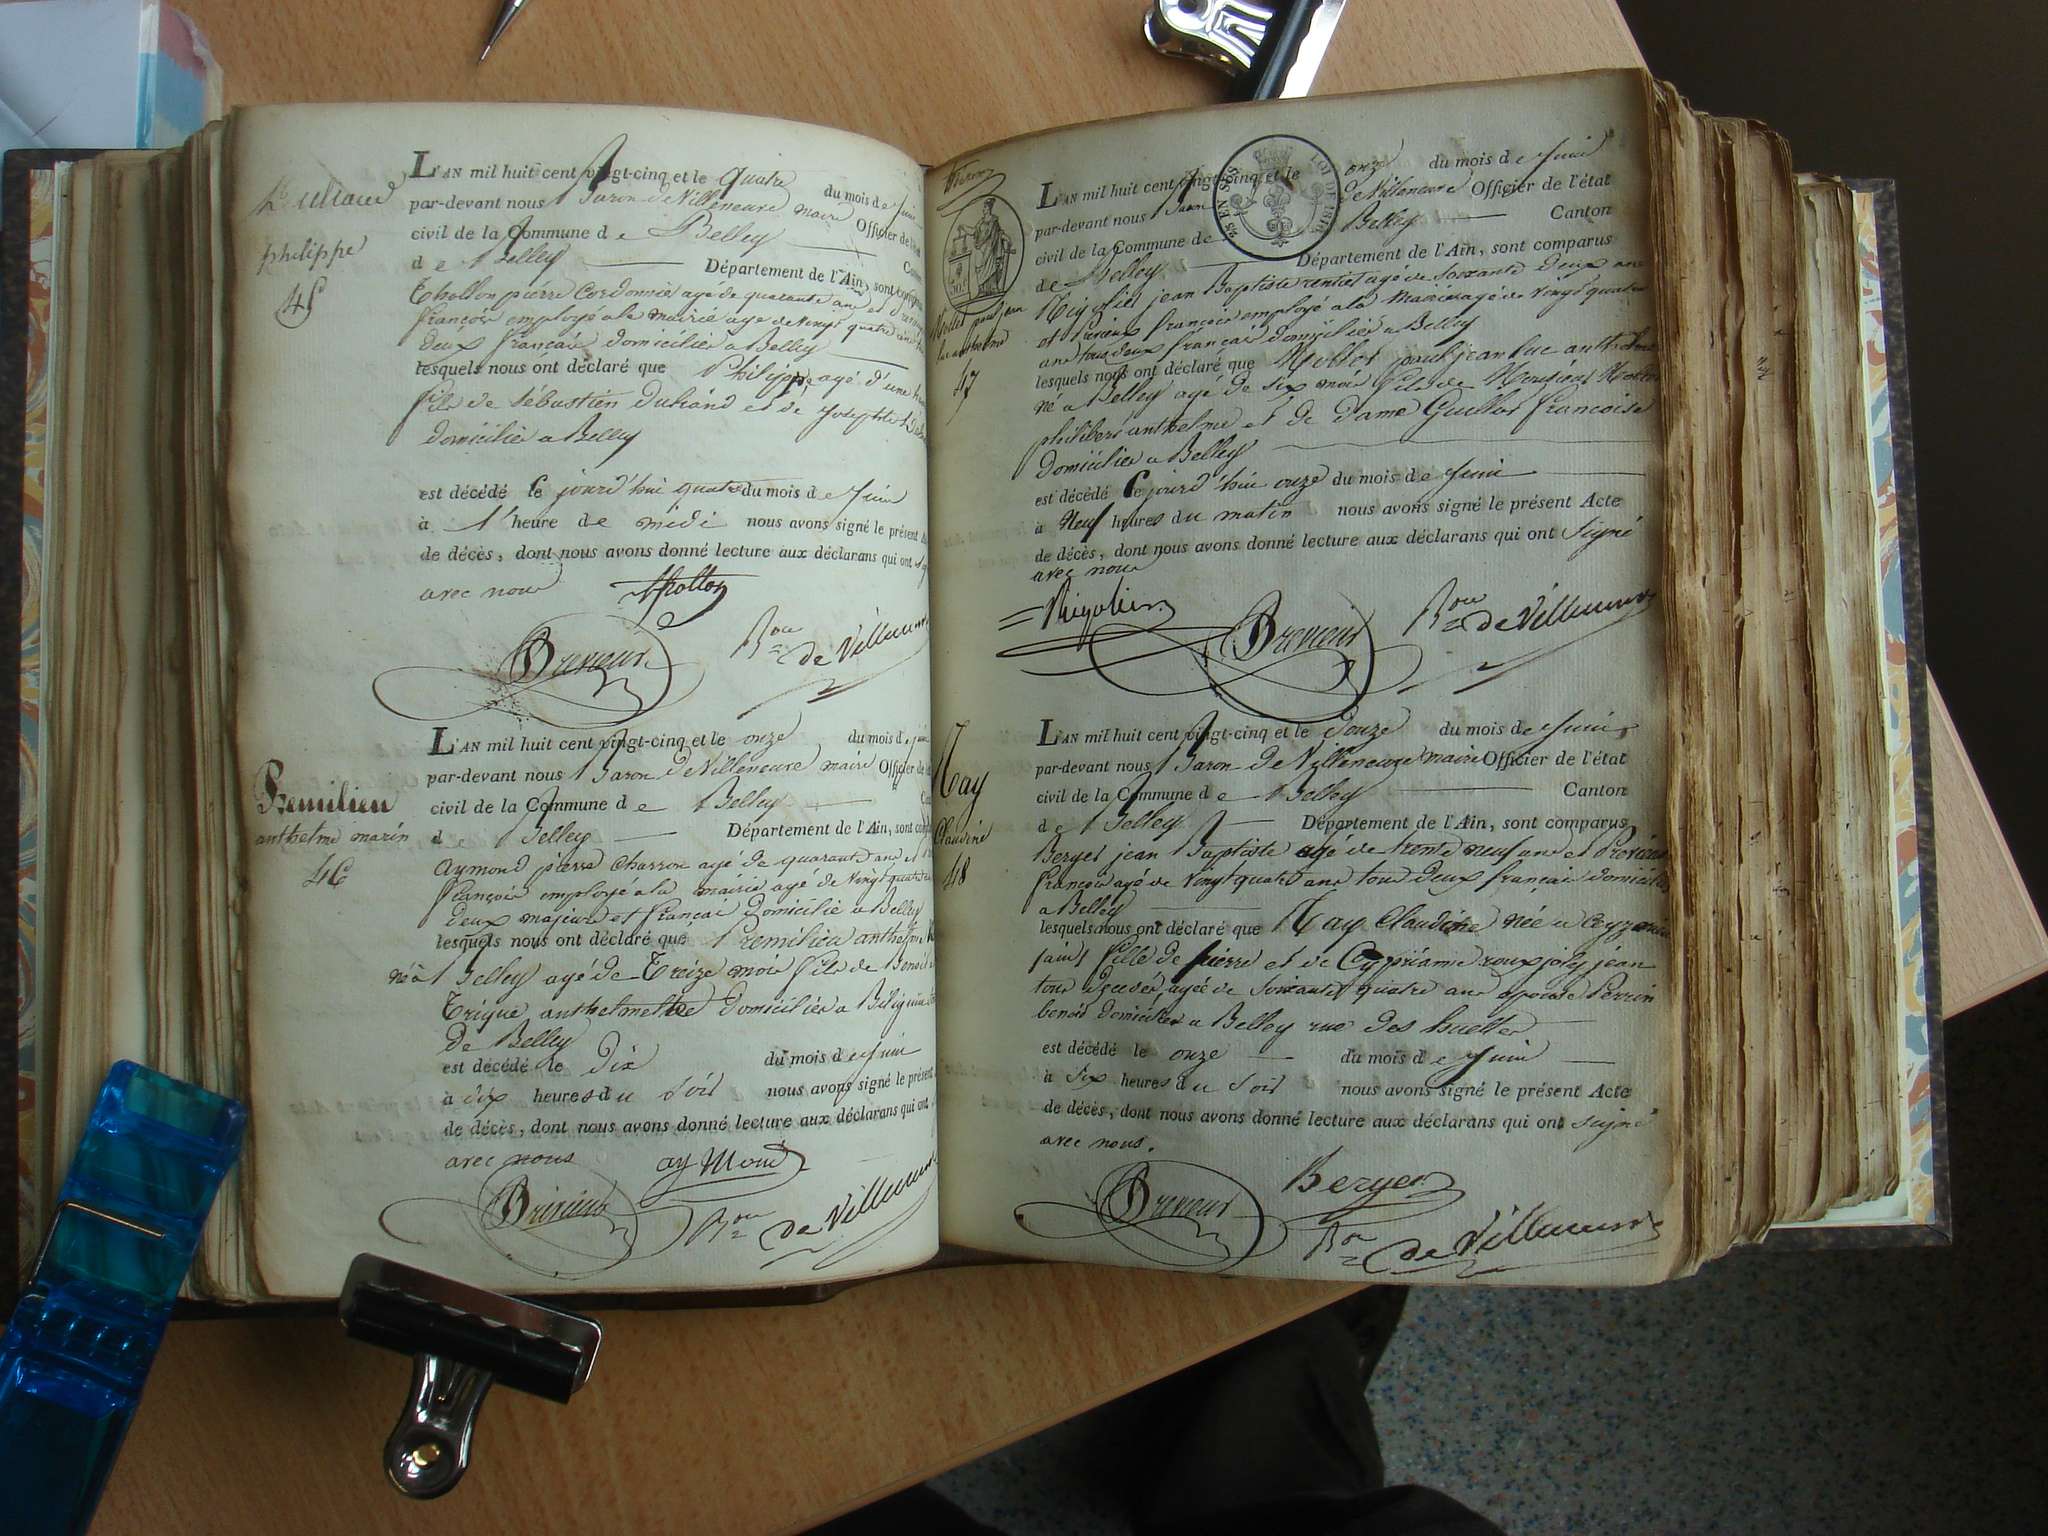 philippe
45
L'AN mil huit cent vingt-cinq et le quatre du mois de Juin
par-devant nous Baron de Villeneuve maire Officier de l'état
civil de la Commune de Belley
de Belley Département de l'Ain, sont comparus
Thollon pierre Cordonnier agé de quarante ans et
françois employé a la mairie agé de vingt quatre ans
deux français domiciliés a Belley
lesquels nous ont déclaré que Philippe, agé d'une
fils de Sébastien Dutrand et de Josephte
domicilié a Belley
est décédé le jourd'hui quatre du mois de Juin
à 1 heure de midi nous avons signé le présent
de décès, dont nous avons donné lecture aux déclarans qui ont
avec nous Thollon
Bon de Villeneuve
Premilieu
anthelme marin
46
L'AN mil huit cent vingt-cinq et le onze du mois de juin
par-devant nous Baron de Villeneuve maire Officier de
civil de la Commune de Belley
de Belley Département de l'Ain, sont
Aymond pierre charron agé de quarante ans et
françois employe a la mairie agé de vingt quatre
deux majeurs et français domicilié a Belley
lesquels nous ont déclaré que Premilieu anthelme
né à Belley agé de Treize mois fils de Benoit
Trique anthelmette domicilié a
de Belley
est décédé le Dix du mois de Juin
à dix heures du Soir nous avons signé le présent
de décès, dont nous avons donné lecture aux déclarans qui ont
avec nous aymond
Bon de Villeneuve
25 EN SUS
47
L'AN mil huit cent vingt-cinq et le onze du mois de Juin
par-devant nous Baron de Villeneuve Officier de l'état
civil de la Commune de Belley Canton
de Belley Département de l'Ain, sont comparus
Rigolier jean Baptiste rentier agé de soixante deux ans
et françois employé a la Mairie agé de vingt quatre
ans tous deux français domicilié a Belley
lesquels nous ont déclaré que Mollot paul jean luc anthelme
né a Belley agé de six mois fils de Monsieur Mollot
philibert anthelme et de dame Guillot françoise
domicilié a Belley
est décédé le jourd'hui onze du mois de Juin
à Neuf heures du matin nous avons signé le présent Acte
de décès, dont nous avons donné lecture aux déclarans qui ont signé
avec nous
Rigolier
Bon de Villeneuve
Nay
Claudine
48
L'AN mil huit cent vingt-cinq et le Douze du mois de Juin
par-devant nous Baron de Villeneuve maire Officier de l'état
civil de la Commune de Belley Canton
de Belley Département de l'Ain, sont comparus
Berger jean Baptiste agé de trente neuf ans et
françois agé de vingt quatre ans tous deux français domicilié
a Belley
lesquels nous ont déclaré que Nay Claudine née a
fille de pierre et de
tous décédés, agée de soixante quatre ans epouse Perrin
benoit domicilié a Belley rue des
est décédé le onze du mois de Juin
à Six heures du Soir nous avons signé le présent Acte
de décès, dont nous avons donné lecture aux déclarans qui ont signé
avec nous.
Berger
Bon de Villeneuve